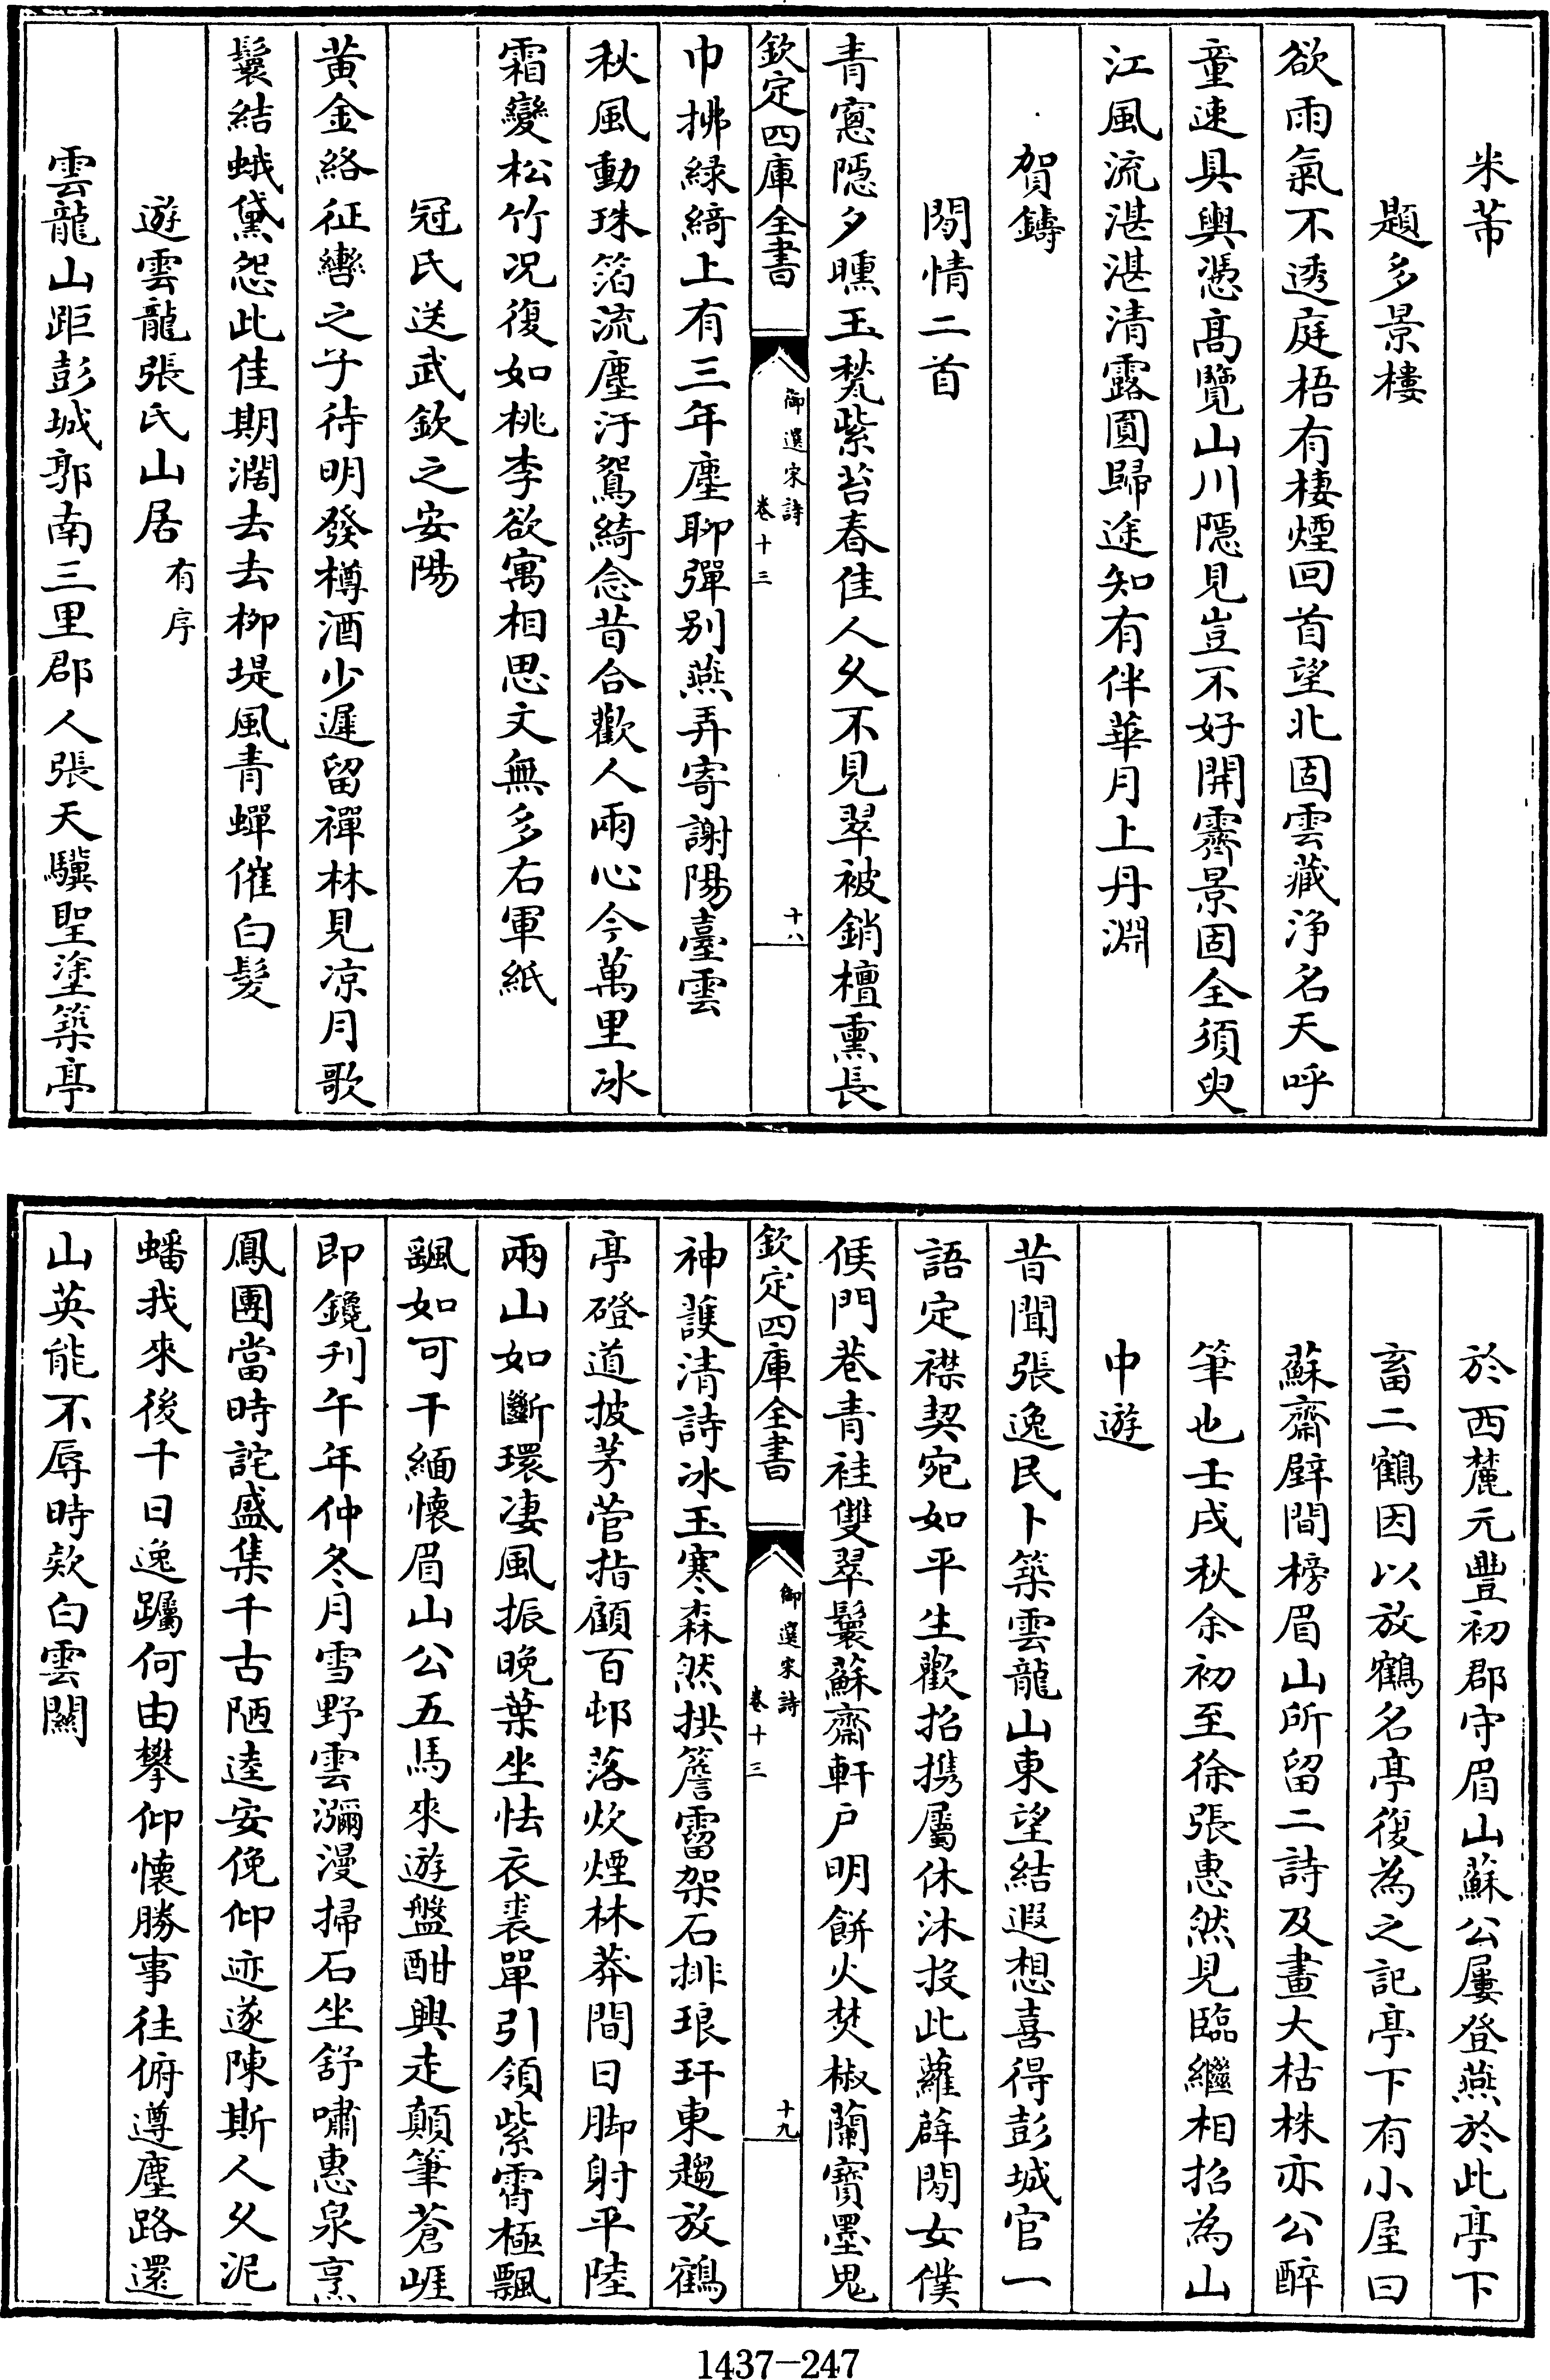 米芾
題多景樓
欲雨氣不透庭梧有棲煙回首望北固雲藏浄名天呼
童速具輿憑髙覽山川隱見豈不好開霽景固全須臾
江風流湛湛清露圓歸途知有伴華月上丹淵
賀鑄
閒情二首
青窓隠夕曛玉甃紫苔春佳人久不見翠被銷檀熏長
欽定四庫全書
御選宋詩
卷十三
十八
巾拂緑綺上有三年塵聊彈别燕弄寄謝陽臺雲
秋風動珠箔流塵汙鴛綺念昔合歡人兩心今萬里冰
霜變松竹况復如桃李欲寓相思文無多右軍紙
冠氏送武欽之安陽
黄金絡征轡之子待明發樽酒少遲留禪林見凉月歌
鬟結蛾黛怨此佳期濶去去栁堤風青蟬催白髮
遊雲龍張氏山居有序
雲龍山距彭城郭南三里郡人張天驥聖塗築亭
於西麓元豐初郡守眉山蘇公屢登燕於此亭下
畜二鶴因以放鶴名亭復為之記亭下有小屋曰
蘇齋壁間榜眉山所留二詩及畫大枯株亦公醉
筆也壬戌秋余初至徐張惠然見臨繼相招為山
中遊
昔聞張逸民卜築雲龍山東望結遐想喜得彭城官一
語定襟契宛如平生歡招携屬休沐投此蘿薜閒女僕
候門巷青袿雙翠鬟蘇齋軒户明餅火焚椒蘭寶墨鬼
欽定四庫全書
御選宋詩
卷十三
十九
神護清詩冰玉寒森然拱簷霤架石排琅玕東趨放鶴
亭磴道披茅菅指顧百邨落炊煙林莽間日脚射平陸
兩山如斷環凄風振晚葉坐怯衣裘單引領紫霄極飄
飄如可干緬懷眉山公五馬來遊盤酣興走顛筆蒼崕
即鑱刋午年仲冬月雪野雲瀰漫掃石坐舒嘯惠泉烹
鳳團當時詫盛集千古陋逵安俛仰迹遂陳斯人久泥
蟠我來後千日逸躅何由攀仰懷勝事往俯遵塵路還
山英能不辱時欵白雲關
1437-247